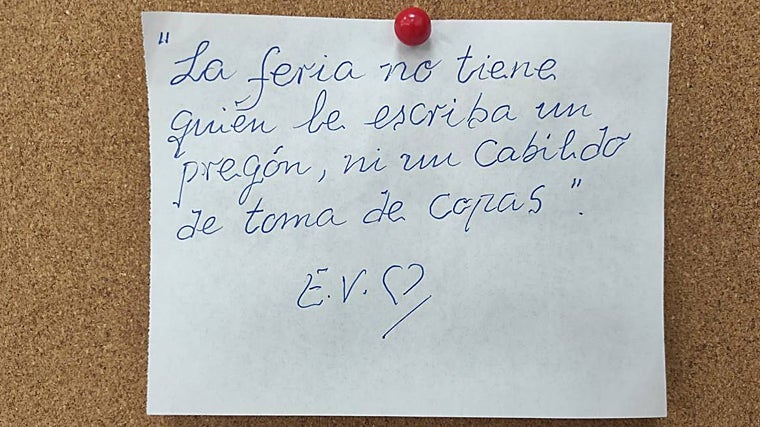 "La feria no tiene
quién le escriba un
pregón, ni un Cabildo
de toma de copas".
E.V.